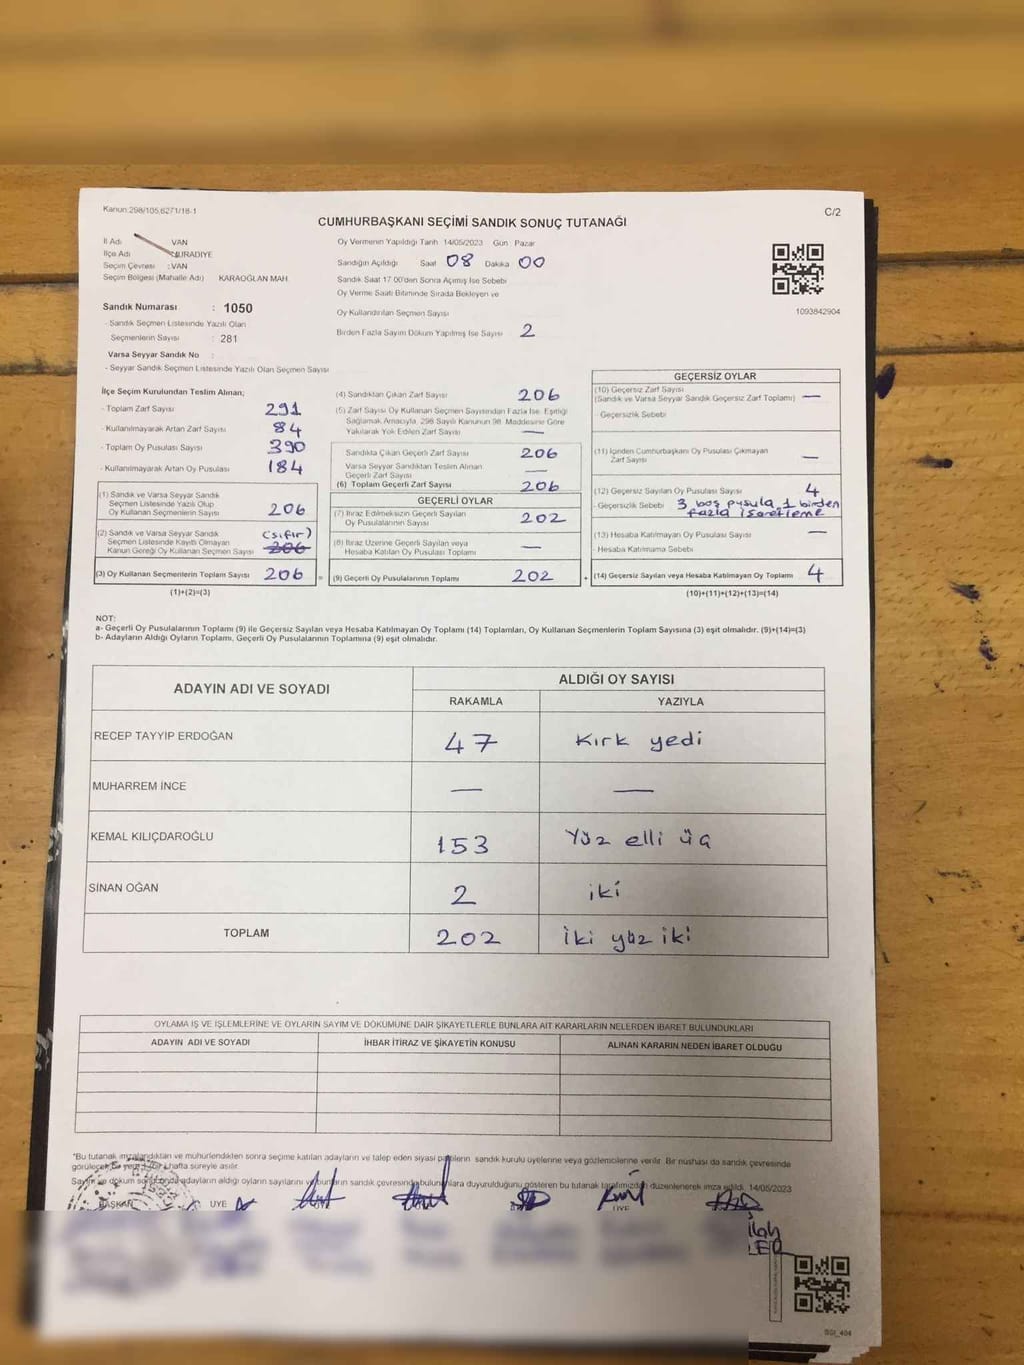 Kanun:298/105,6271/18-1
C/2
CUMHURBAŞKANI SEÇİMİ SANDIK SONUÇ TUTANAĞI
İl Adı VAN
İlçe Adı MURADİYE
Seçim Çevresi :VAN
Seçim Bölgesi (Mahalle Adı) KARAOĞLAN MAH.
Sandık Numarası : 1050
- Sandık Seçmen Listesinde Yazılı Olan
Seçmenlerin Sayısı : 281
Varsa Seyyar Sandık No :
- Seyyar Sandık Seçmen Listesinde Yazılı Olan Seçmen Sayısı
Oy Vermenin Yapıldığı Tarih 14/05/2023 Gün Pazar
Sandığın Açıldığı Saat 08 Dakika 00
Sandık Saat 17:00'den Sonra Açılmış İse Sebebi
Oy Verme Saati Bitiminde Sırada Bekleyen ve
Oy Kullandırılan Seçmen Sayısı
Birden Fazla Sayım Döküm Yapılmış İse Sayısı 2
1093842904
İlçe Seçim Kurulundan Teslim Alınan;
- Toplam Zarf Sayısı 291
- Kullanılmayarak Artan Zarf Sayısı 84
- Toplam Oy Pusulası Sayısı 390
- Kullanılmayarak Artan Oy Pusulası 184
(1) Sandık ve Varsa Seyyar Sandık
Seçmen Listesinde Yazılı Olup
Oy Kullanan Seçmenlerin Sayısı 206
(2) Sandık ve Varsa Seyyar Sandık
Seçmen Listesinde Kayıtlı Olmayan
Kanun Gereği Oy Kullanan Seçmen Sayısı (sıfır) 206
(3) Oy Kullanan Seçmenlerin Toplam Sayısı 206 =
(1)+(2)=(3)
(4) Sandıktan Çıkan Zarf Sayısı 206
(5) Zarf Sayısı Oy Kullanan Seçmen Sayısından Fazla İse, Eşitliği
Sağlamak Amacıyla, 298 Sayılı Kanunun 98. Maddesine Göre
Yakılarak Yok Edilen Zarf Sayısı —
Sandıkta Çıkan Geçerli Zarf Sayısı 206
Varsa Seyyar Sandıktan Teslim Alınan
Geçerli Zarf Sayısı —
(6) Toplam Geçerli Zarf Sayısı 206
GEÇERLİ OYLAR
(7) İtiraz Edilmeksizin Geçerli Sayılan
Oy Pusulalarının Sayısı 202
(8) İtiraz Üzerine Geçerli Sayılan veya
Hesaba Katılan Oy Pusulası Toplamı —
(9) Geçerli Oy Pusulalarının Toplamı 202 +
GEÇERSİZ OYLAR
(10) Geçersiz Zarf Sayısı
(Sandık ve Varsa Seyyar Sandık Geçersiz Zarf Toplamı) —
- Geçersizlik Sebebi
(11) İçinden Cumhurbaşkanı Oy Pusulası Çıkmayan
Zarf Sayısı —
(12) Geçersiz Sayılan Oy Pusulası Sayısı 4
- Geçersizlik Sebebi 3 boş pusula, 1 birden
fazla işaretleme
(13) Hesaba Katılmayan Oy Pusulası Sayısı —
- Hesaba Katılmama Sebebi
(14) Geçersiz Sayılan veya Hesaba Katılmayan Oy Toplamı 4
(10)+(11)+(12)+(13)=(14)
NOT:
a- Geçerli Oy Pusulalarının Toplamı (9) ile Geçersiz Sayılan veya Hesaba Katılmayan Oy Toplamı (14) Toplamları, Oy Kullanan Seçmenlerin Toplam Sayısına (3) eşit olmalıdır. (9)+(14)=(3)
b- Adayların Aldığı Oyların Toplamı, Geçerli Oy Pusulalarının Toplamına (9) eşit olmalıdır.
ADAYIN ADI VE SOYADI ALDIĞI OY SAYISI
RAKAMLA YAZIYLA
RECEP TAYYİP ERDOĞAN 47 Kırk yedi
MUHARREM İNCE — —
KEMAL KILIÇDAROĞLU 153 Yüz elli üç
SİNAN OĞAN 2 iki
TOPLAM 202 İki yüz iki
OYLAMA İŞ VE İŞLEMLERİNE VE OYLARIN SAYIM VE DÖKÜMÜNE DAİR ŞİKAYETLERLE BUNLARA AİT KARARLARIN NELERDEN İBARET BULUNDUKLARI
ADAYIN ADI VE SOYADI İHBAR İTİRAZ VE ŞİKAYETİN KONUSU ALINAN KARARIN NEDEN İBARET OLDUĞU
*Bu tutanak imzalandıktan ve mühürlendikten sonra seçime katılan adayların ve talep eden siyasi partilerin sandık kurulu üyelerine veya gözlemcilerine verilir. Bir nüshası da sandık çevresinde
görülecek bir yere 1 (bir) hafta süreyle asılır.
Sayım ve döküm sonucunda adayların aldığı oyların sayılarını ve bunların sandık çevresinde bulunanlara duyurulduğunu gösteren bu tutanak tarafımızdan düzenlenerek imza edildi. 14/05/2023
BAŞKAN ÜYE ÜYE